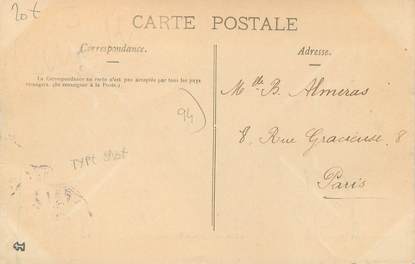 20t
CARTE POSTALE
Correspondance.
Adresse.
La Correspondance au recto n'est pas acceptée par tous les pays
étrangers. (Se renseigner à la Poste.)
Mlle B. Almeras
94
8, Rue Gracieuse, 8
TYPE
Paris